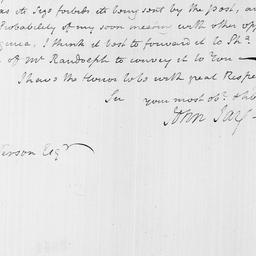 as its size forbids its being sent by the Post, and
Probability of my soon meeting with other opp
ginia. I think it best to forward it to
of Mr Randolph to convey it to You —
I have the Honor to be with great Respe
Sir your most obt. &
John Jay
erson Esqr